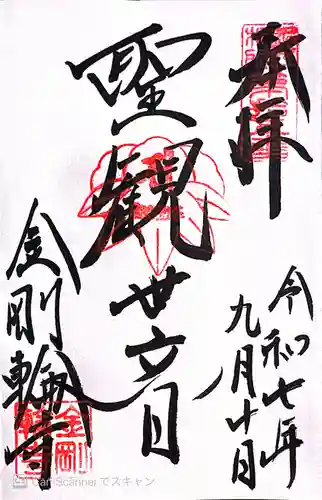 奉拝
令和七年
九月十日
聖観世立目
金剛輪寺
CamScanner でスキャン